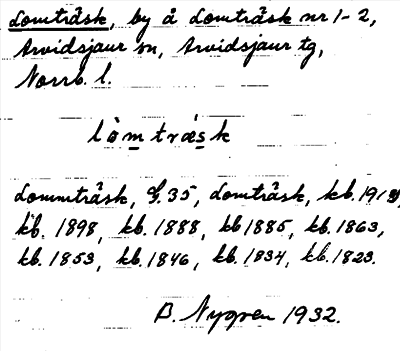 Lomträsk, by å Lomträsk nr 1-2,
Arvidsjaur sn, Arvidsjaur tg,
Norrb. l.
lòmtræsk
Lommträsk, G.35, Lomträsk, kb. 1913,
kb. 1898, kb. 1888, kb 1885, kb. 1863,
kb. 1853, kb. 1846, kb. 1834, kb. 1823.
B. Nygren 1932.